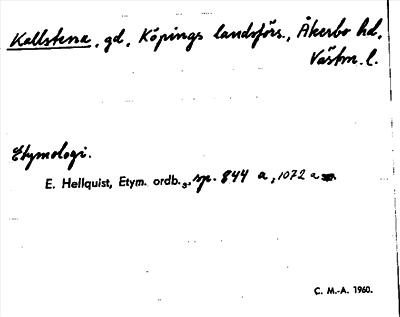 Kallstena, gd, Köpings landsförs., Åkerbo hd,
Västm. l.
Etymologi.
E. Hellquist, Etym. ordb., sp. 844 a, 1072 a
C. M.-A. 1960.